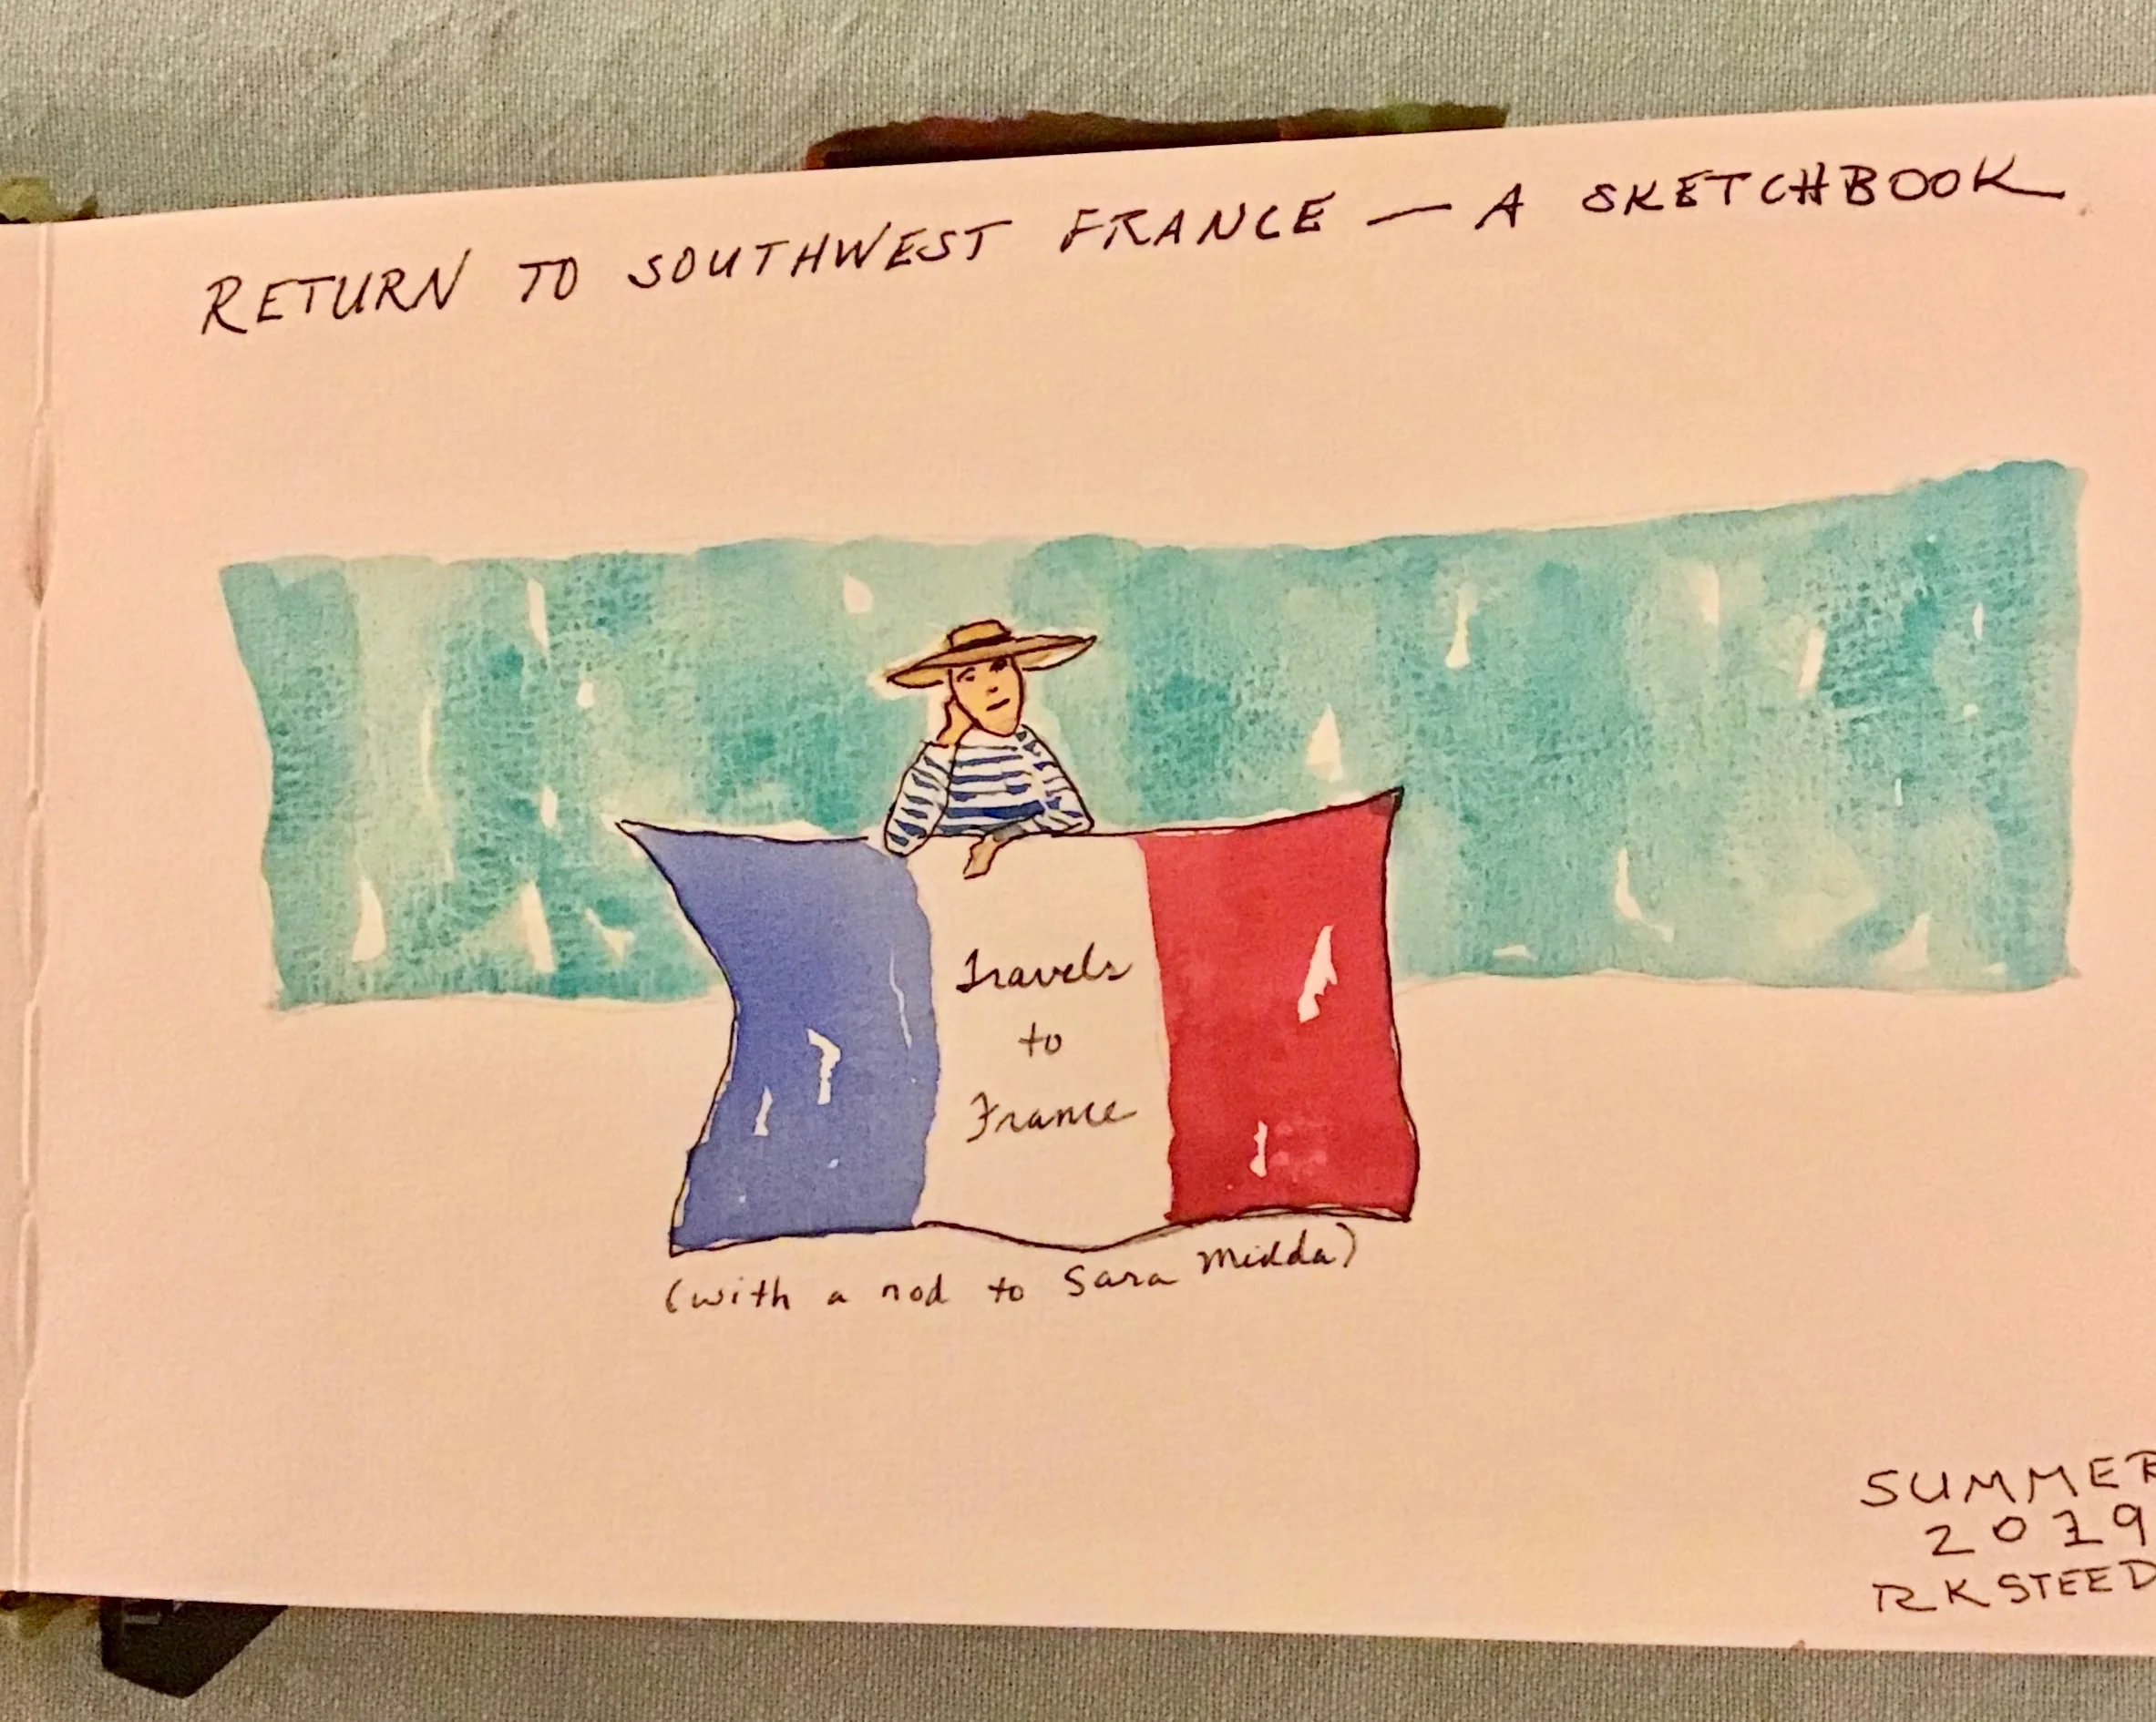 RETURN TO SOUTHWEST FRANCE — A SKETCHBOOK
Travels
to
France
(with a nod to Sara Midda)
SUMMER
2019
RKSTEED